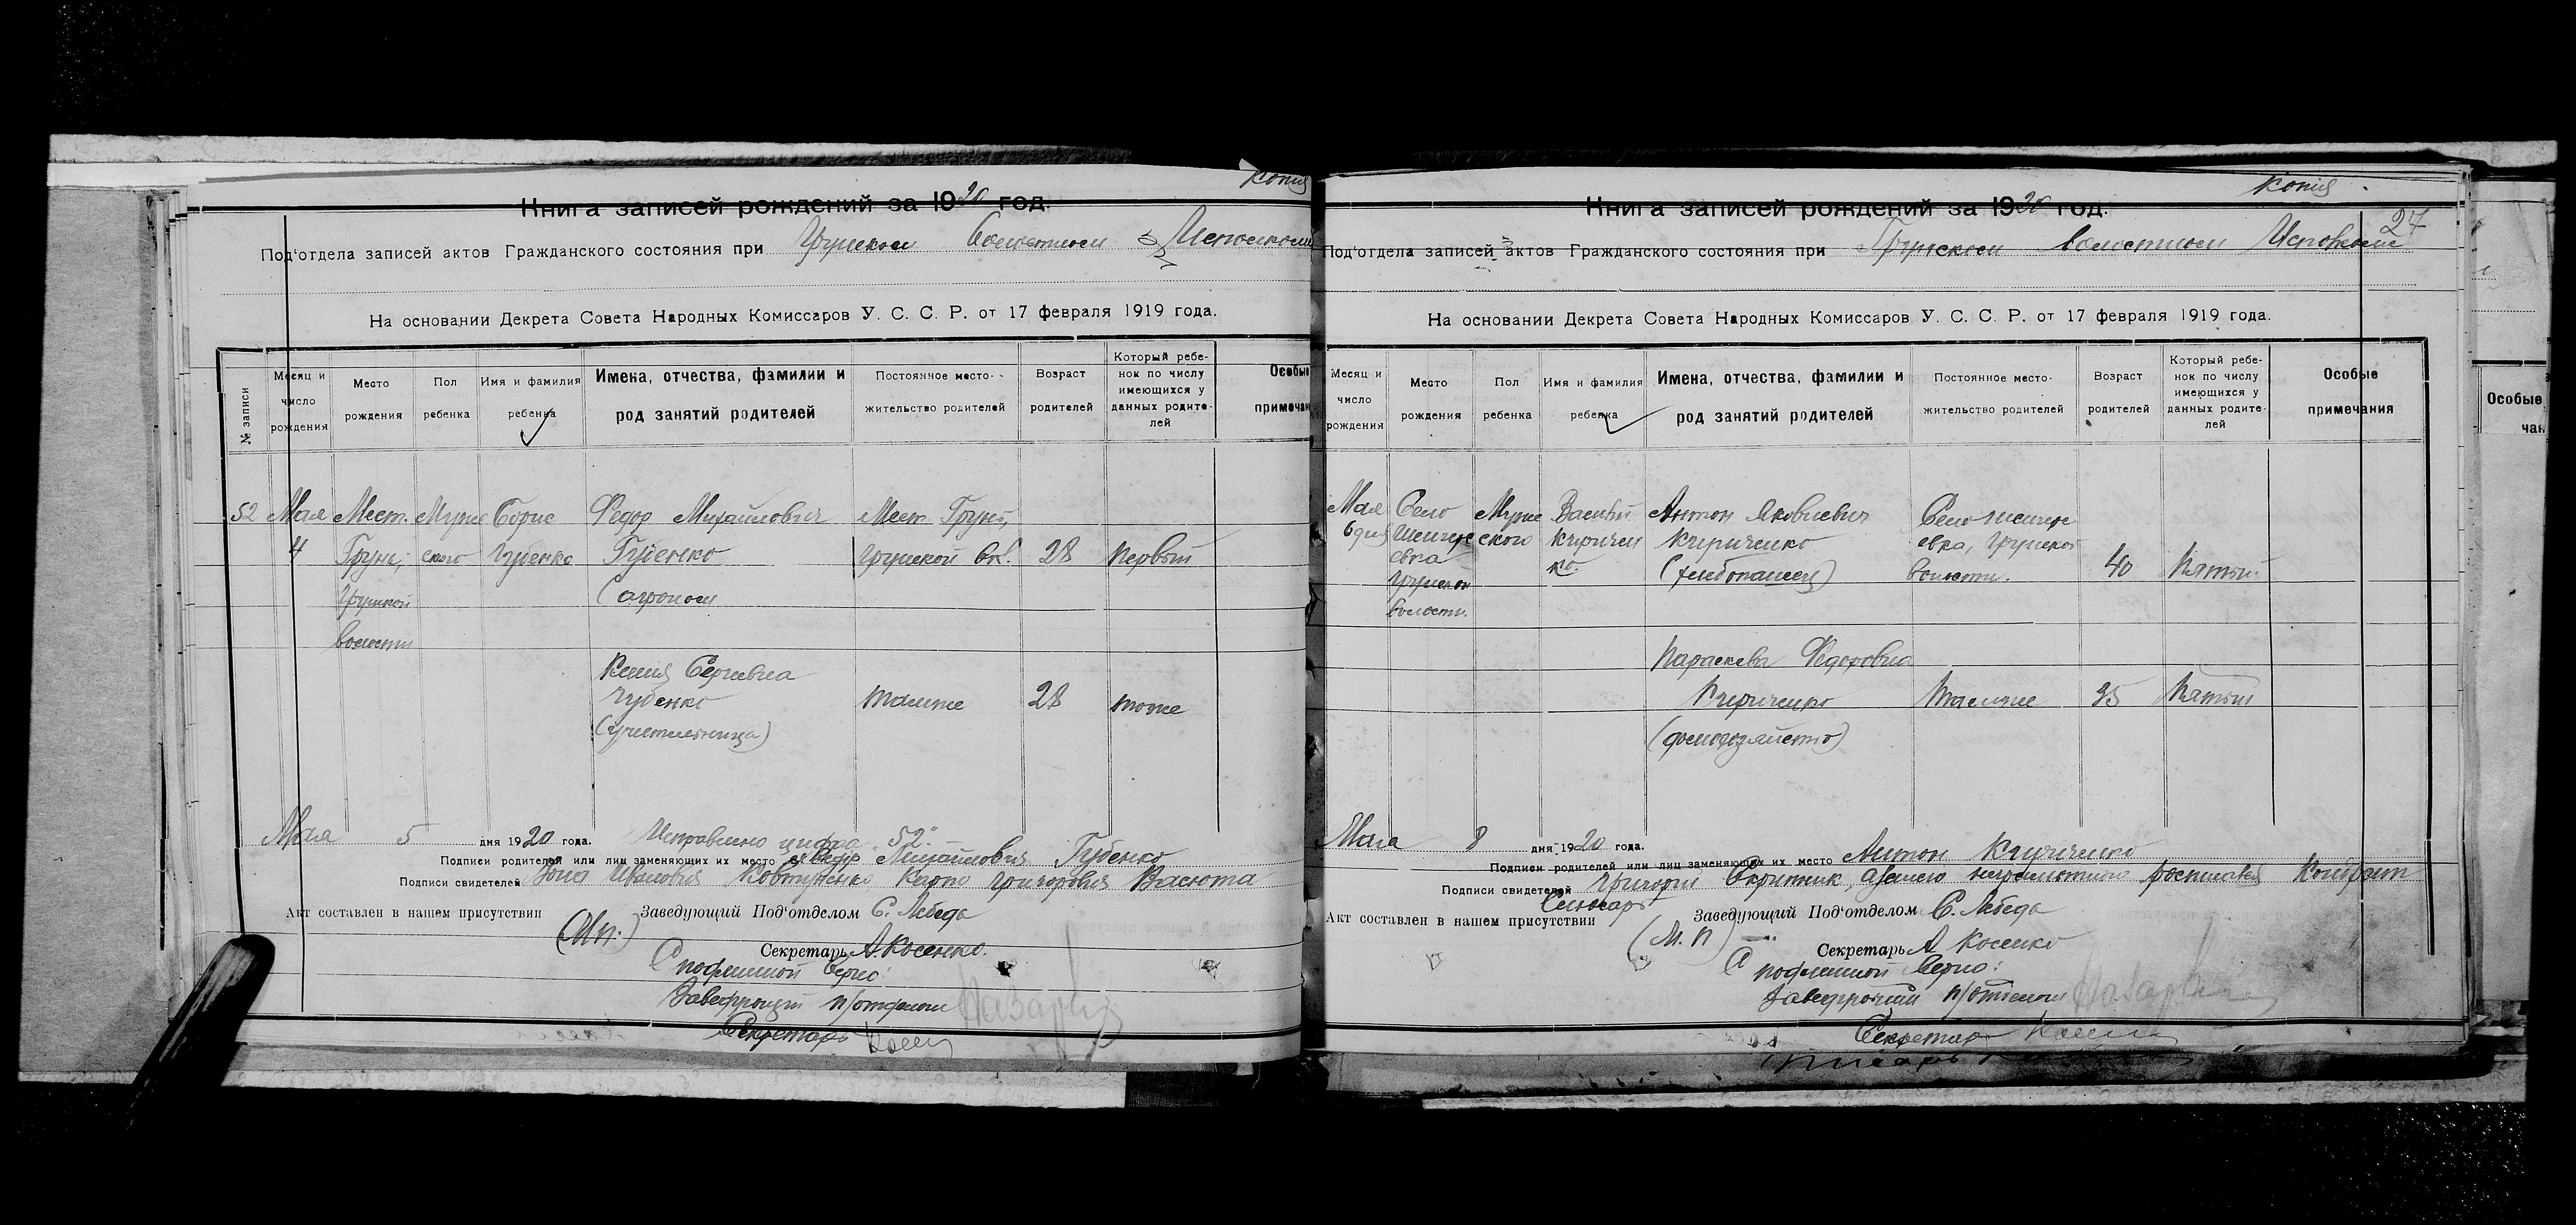 Копия
Книга записей рождений за 1920 год.
Под'отдела записей актов Гражданского состояния при Грунском Волостном Исполкоме
На основании Декрета Совета Народных Комиссаров У. С. С. Р. от 17 февраля 1919 года.
№ записи
Месяц и число рождения
Место рождения
Пол ребенка
Имя и фамилия ребенка
Имена, отчества, фамилии и род занятий родителей
Постоянное место-жительство родителей
Возраст родителей
Который ребе-нок по числу имеющихся у данных родите-лей
Особые примечан
52 Мая Мест. Муже Борис Федор Михайлович Мест. Грунь,
4 Грунь, ского Губенко Губенко Грунской вол. 28 Первый
Грунской (агроном
волости
Ксения Сергиевна
Губенко тамже 28 тоже
(учительница)
Мая 5 дня 1920 года. Исправлено цифра "52"
Подписи родителей или лиц заменяющих их место Федор Михайлович Губенко
Подписи свидетелей Иванович Ковтуненко, Карпо Григорович Васюта
Акт составлен в нашем присутствии Заведующий Под'отделом С. Лебедь
(М.п.)
Секретарь А. Косенко.
С подлинной верно:
Заведующий п/отделом
Секретарь
Копия
27
Книга записей рождений за 1920 год.
Под'отдела записей актов Гражданского состояния при Грунском волостном Исполкоме
На основании Декрета Совета Народных Комиссаров У. С. С. Р. от 17 февраля 1919 года.
Месяц и число рождения
Место рождения
Пол ребенка
Имя и фамилия ребенка
Имена, отчества, фамилии и род занятий родителей
Постоянное место-жительство родителей
Возраст родителей
Который ребе-нок по числу имеющихся у данных родите-лей
Особые примечания
Мая Село Муже Василий Антон Яковлевич Село
6 дня ского Киричен Кириченко евка, Грунской
евка ко. (хлебопашец) волости. 40 Пятый
Грунской
волости.
Параскева Федоровна
Кириченко тамже 35 Пятый
(домохозяйство)
Мая 8 дня 1920 года.
Подписи родителей или лиц заменяющих их место Антон Кириченко
Подписи свидетелей Григорий Скрипник, а за него неграмотного расписался Кондрат
Слюсарь
Акт составлен в нашем присутствии Заведующий Под'отделом С. Лебедь
(М. п)
Секретарь А Косенко
С подлинной верно:
Заведующий п/отделом
Секретарь
Особые
чан